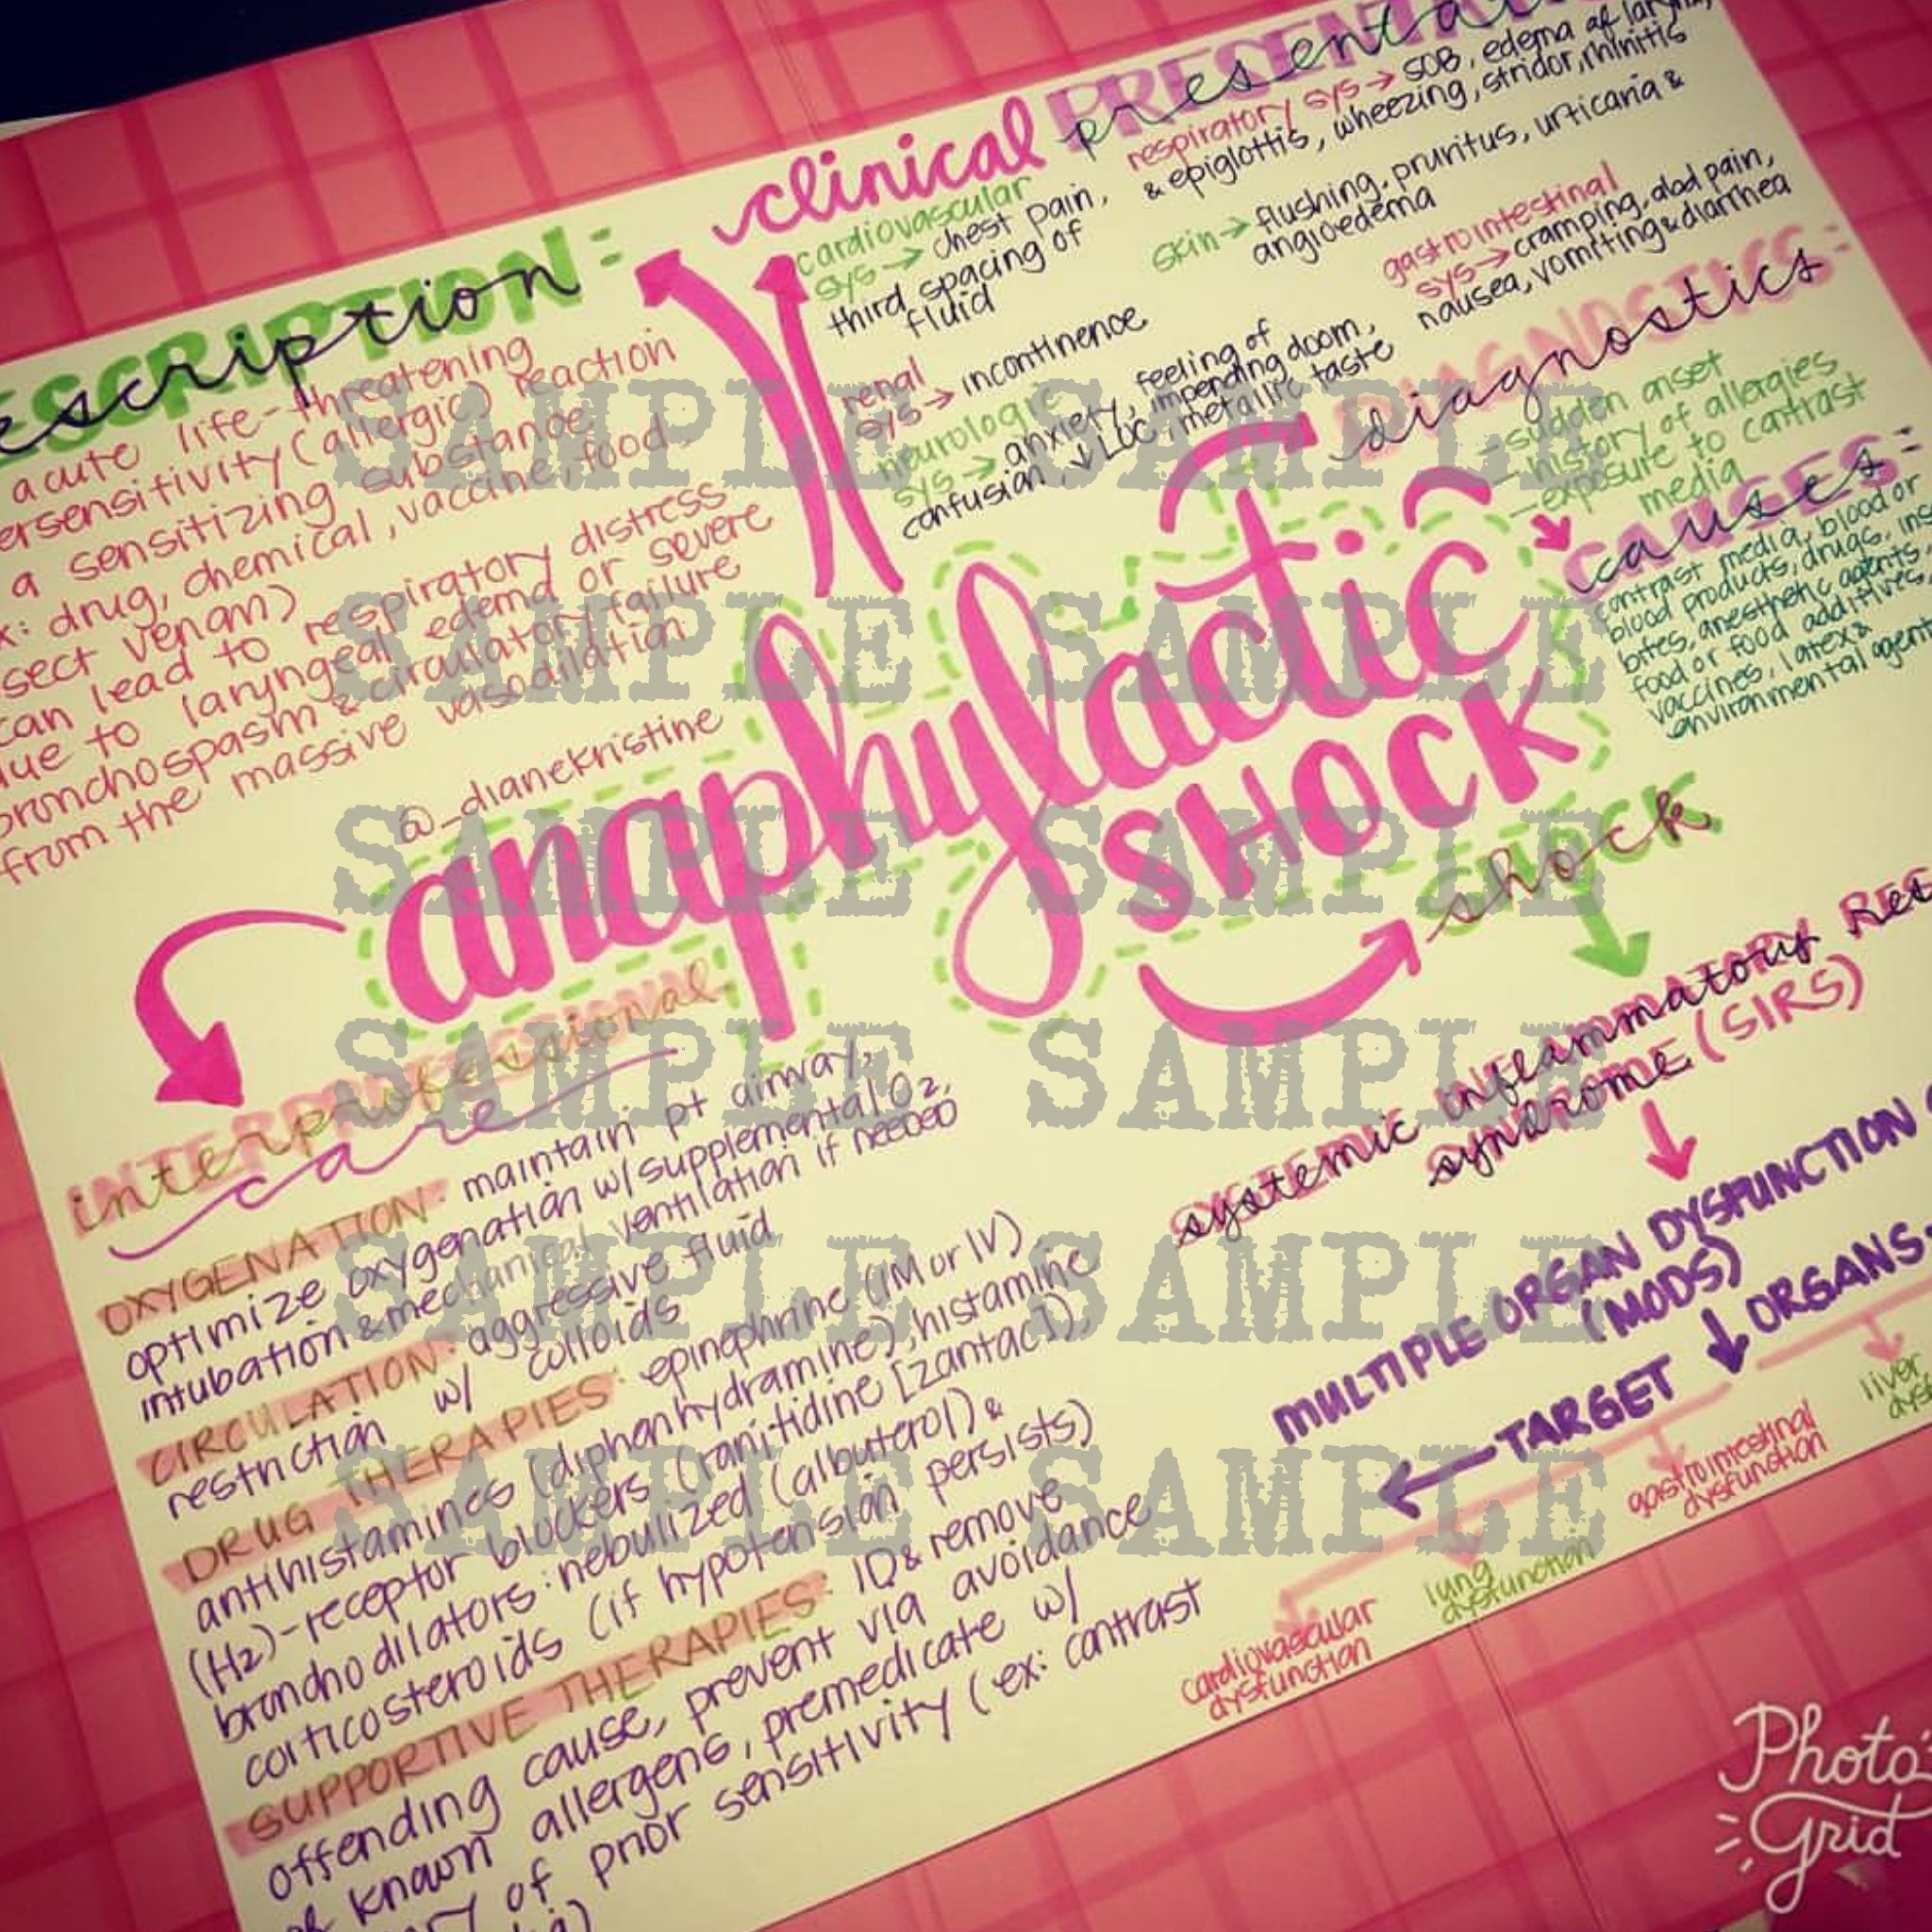 escription:
acute life-threatening
ersensitivity (allergic) reaction
a sensitizing substance
x: drug, chemical, vaccine, food,
sect venom)
can lead to respiratory distress
due to laryngeal edema or severe
bronchospasm & circulatory failure
from the massive vasodilation
@_dianekristine
clinical
cardiovascular
sys → chest pain,
third spacing of
fluid
respiratory sys → SOB, edema of larynx,
& epiglottis, wheezing, stridor, rhinitis
skin → flushing, pruritus, urticaria &
angioedema
renal
sys → incontinence
neurologic
sys → anxiety, feeling of
impending doom,
confusion, ↓ LOC, metallic taste
gastrointestinal
sys → cramping, abd pain,
nausea, vomiting & diarrhea
diagnostics:
- sudden onset
- history of allergies
- exposure to contrast
media
causes:
contrast media, blood or
blood products, drugs,
bites, anesthetic agents,
food or food additives,
vaccines, latex &
environmental agent
anaphylactic
SHOCK
shock
systemic inflammatory
syndrome (SIRS)
MULTIPLE ORGAN DYSFUNCTION
(MODS)
TARGET ORGANS
cardiovascular
dysfunction
lung
dysfunction
gastrointestinal
dysfunction
liver
interprofessional
care
OXYGENATION: maintain pt airway,
optimize oxygenation w/ supplemental O2,
intubation & mechanical ventilation if needed
CIRCULATION: aggressive fluid
restriction w/ colloids
DRUG THERAPIES: epinephrine (IM or IV),
antihistamines (diphenhydramine), histamine
(H2)-receptor blockers (ranitidine [zantac]),
bronchodilators: nebulized (albuterol) &
corticosteroids (if hypotension persists)
SUPPORTIVE THERAPIES: ID & remove
offending cause, prevent via avoidance
of known allergens, premedicate w/
of prior sensitivity (ex: contrast
SAMPLE SAMPLE
SAMPLE SAMPLE
SAMPLE SAMPLE
SAMPLE SAMPLE
SAMPLE SAMPLE
SAMPLE SAMPLE
Photo
Grid